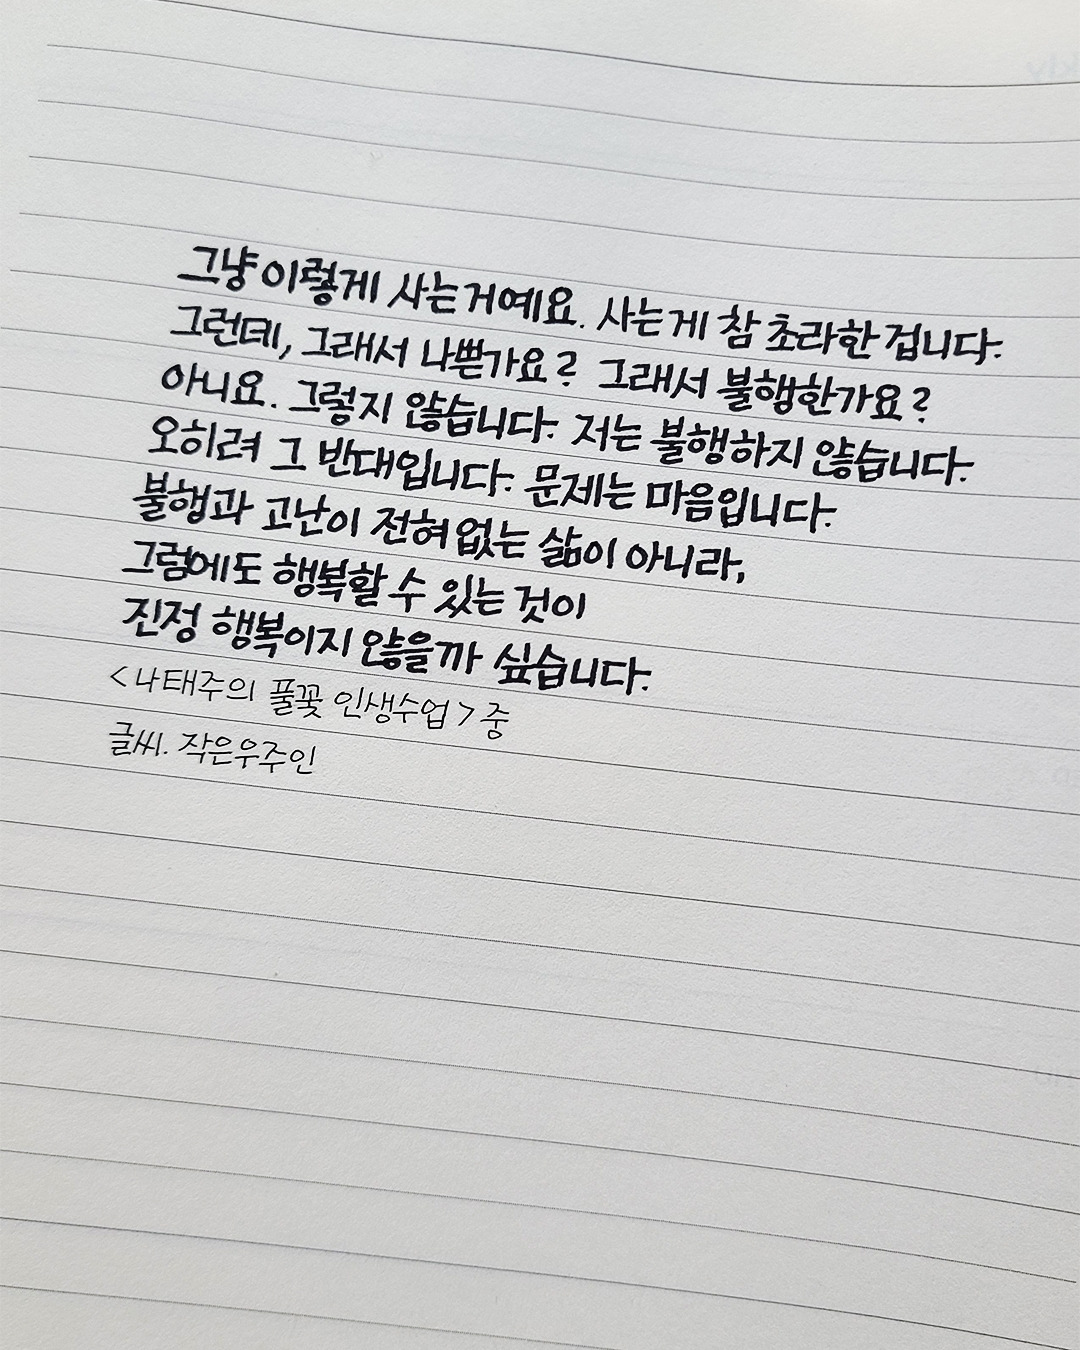 그냥 이렇게 사는거예요. 사는게 참 초라한 겁니다.
그런데, 그래서 나쁜가요? 그래서 불행한가요?
아니요. 그렇지 않습니다. 저는 불행하지 않습니다.
오히려 그 반대입니다. 문제는 마음입니다.
불행과 고난이 전혀 없는 삶이 아니라,
그럼에도 행복할 수 있는 것이
진정 행복이지 않을까 싶습니다.
<나태주의 풀꽃 인생수업> 중
글씨. 작은우주인